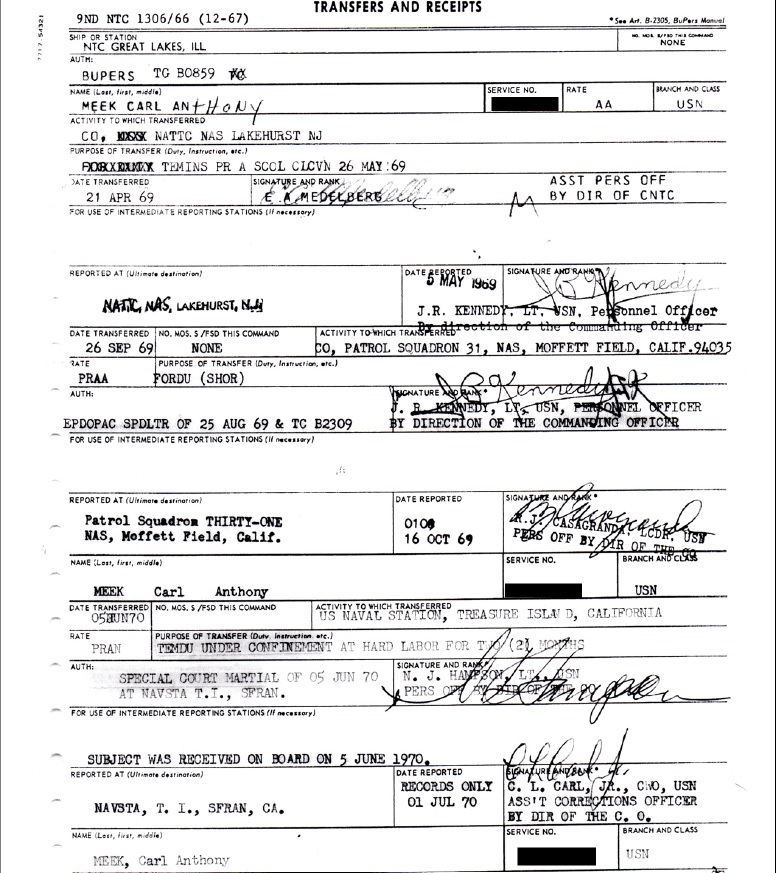 TRANSFERS AND RECEIPTS
9ND NTC 1306/66 (12-67)
*See Art. B-2305, BuPers Manual
SHIP OR STATION
NTC GREAT LAKES, ILL
NO. MOS. S/FSD THIS COMMAND
NONE
AUTH:
BUPERS TG B0859
NAME (Last, first, middle)
MEEK CARL ANTHONY
SERVICE NO.
RATE
AA
BRANCH AND CLASS
USN
ACTIVITY TO WHICH TRANSFERRED
CO, NATTC NAS LAKEHURST NJ
PURPOSE OF TRANSFER (Duty, Instruction, etc.)
TEMINS PR A SCOL CLCVN 26 MAY 69
DATE TRANSFERRED
21 APR 69
SIGNATURE AND RANK
E. A. MEDELBERG
ASST PERS OFF
BY DIR OF CNTC
FOR USE OF INTERMEDIATE REPORTING STATIONS (If necessary)
REPORTED AT (Ultimate destination)
NATTC, NAS, LAKEHURST, N.J.
DATE REPORTED
5 MAY 1969
SIGNATURE AND RANK*
J B Kennedy
J.R. KENNEDY, LT, USN, Personnel Officer
By direction of the Commanding Officer
DATE TRANSFERRED
26 SEP 69
NO. MOS. S/FSD THIS COMMAND
NONE
ACTIVITY TO WHICH TRANSFERRED
CO, PATROL SQUADRON 31, NAS, MOFFETT FIELD, CALIF.94035
RATE
PRAA
PURPOSE OF TRANSFER (Duty, Instruction, etc.)
FORDU (SHOR)
AUTH:
EPDOPAC SPDLTR OF 25 AUG 69 & TC B2309
SIGNATURE AND RANK*
J. R. KENNEDY, LT, USN, PERSONNEL OFFICER
BY DIRECTION OF THE COMMANDING OFFICER
FOR USE OF INTERMEDIATE REPORTING STATIONS (If necessary)
REPORTED AT (Ultimate destination)
Patrol Squadron THIRTY-ONE
NAS, Moffett Field, Calif.
DATE REPORTED
16 OCT 69
SIGNATURE AND RANK*
R.J. CASAGRANDA, LCDR, USN
PERS OFF BY DIR OF THE CO
NAME (Last, first, middle)
MEEK Carl Anthony
SERVICE NO.
BRANCH AND CLASS
USN
DATE TRANSFERRED
05JUN70
NO. MOS. S/FSD THIS COMMAND
ACTIVITY TO WHICH TRANSFERRED
US NAVAL STATION, TREASURE ISLAND, CALIFORNIA
RATE
PRAN
PURPOSE OF TRANSFER (Duty, Instruction, etc.)
TEMDU UNDER CONFINEMENT AT HARD LABOR FOR TWO (2) MONTHS
AUTH:
SPECIAL COURT MARTIAL OF 05 JUN 70
AT NAVSTA T.I., SFRAN.
SIGNATURE AND RANK*
N. J. HAMPSON, LT., USN
PERS OFF BY DIR OF THE CO
FOR USE OF INTERMEDIATE REPORTING STATIONS (If necessary)
SUBJECT WAS RECEIVED ON BOARD ON 5 JUNE 1970.
REPORTED AT (Ultimate destination)
NAVSTA, T. I., SFRAN, CA.
DATE REPORTED
RECORDS ONLY
01 JUL 70
SIGNATURE AND RANK*
C. L. CARL, JR., CWO, USN
ASS'T CORRECTIONS OFFICER
BY DIR OF THE C. O.
NAME (Last, first, middle)
MEEK, Carl Anthony
SERVICE NO.
BRANCH AND CLASS
USN